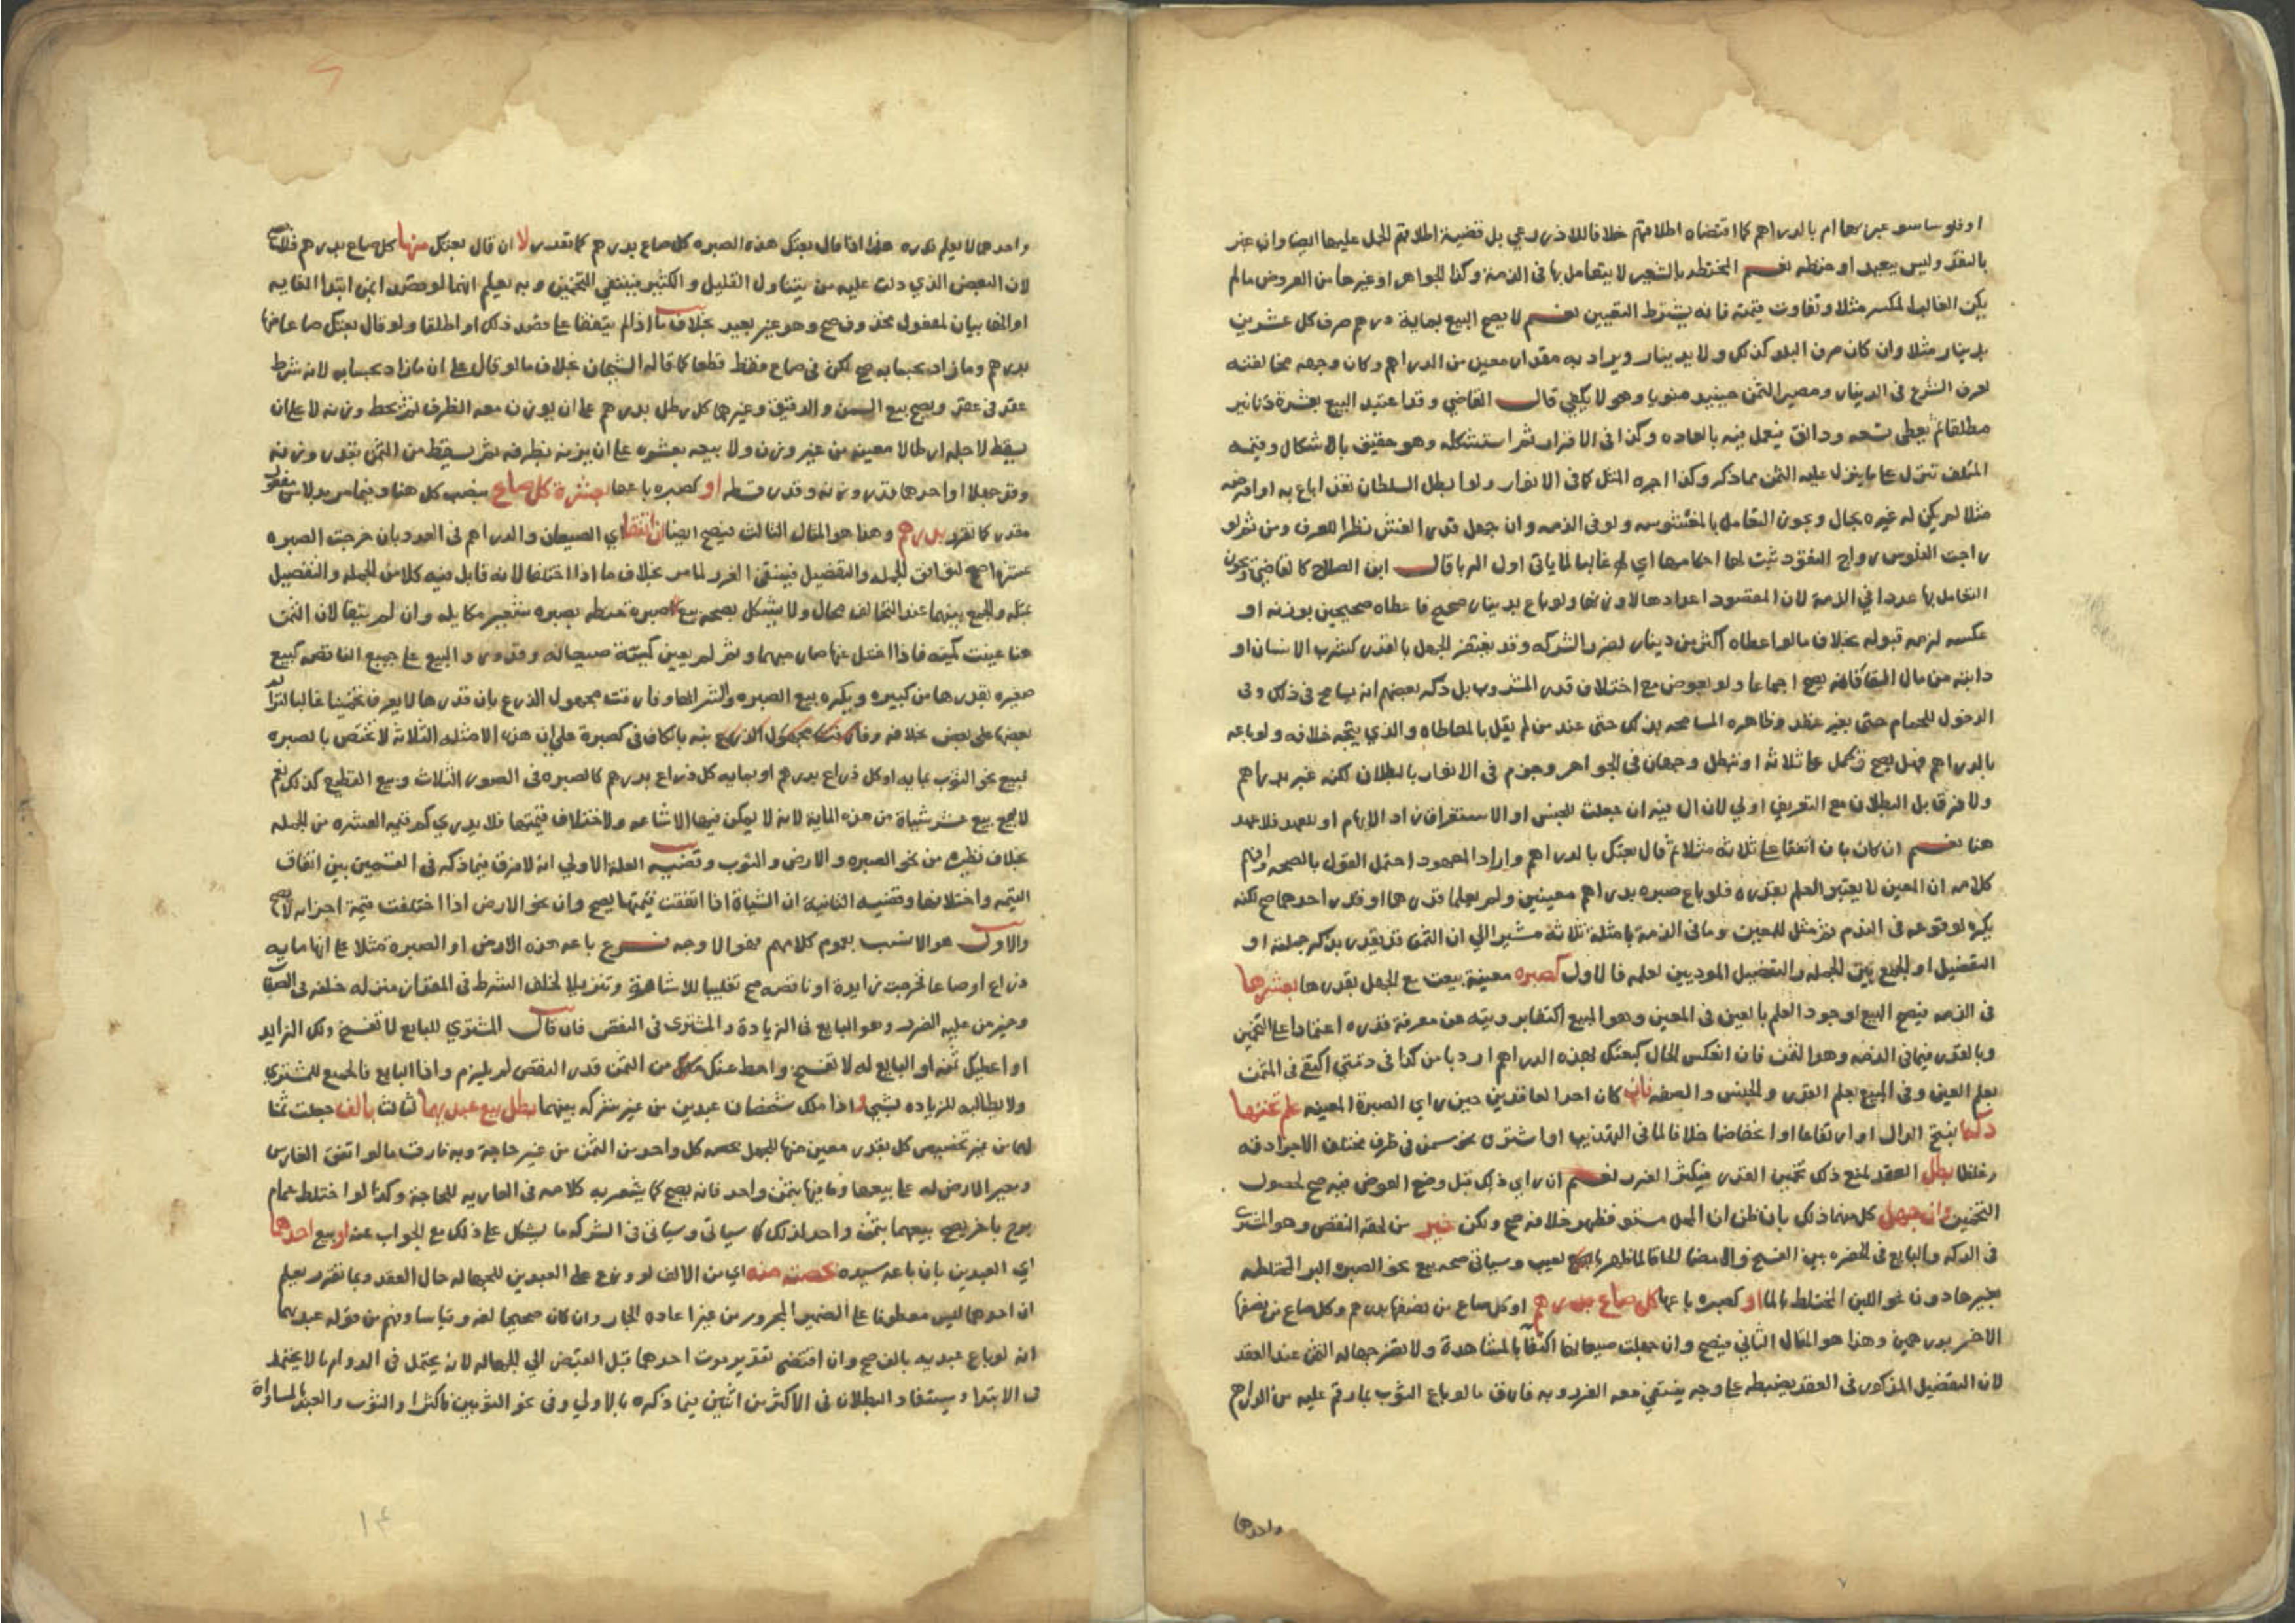 او فلوسا سو عبر بها ام بالدراهم كما اقتضاه اطلاقهم خلافا للاذرعي بل قضية اطلاقهم الحمل عليها ايضا وان عبر
بالنقد وليس ببعيد او حنطه نعم المختلطه بالشعير لا يتعامل بها في الذمة وكذا الجواهر او غيرها من العروض ما لم
يكن الغالب المكسر مثلا وتفاوت قيمته فانه يشترط التعيين نعم لا يصح البيع بماية درهم صرف كل عشرين
بدينار مثلا وان كان صرف البلد كذلك ولا بدينار ويراد به مقدار معين من الدراهم وكان وجهه مخالفته
لعرف الشرع في الدينار ومصير الثمن حينيد منويا وهو لا يكفي قال القاضي وقد اعتيد البيع بعشرة دنانير
مطلقا ثم يعطي تسعه ودانق فيعمل فيه بالعاده وكذا في الاقرار ثم استشكله وهو حقيق بالاشكال وقيمه
المتلف تنزل على ما ينزل عليه الثمن مما ذكر وكذا اجره المثل كما في الانوار ولو ابطل السلطان نقدا باع به او اقرضه
مثلا لم يكن له غيره بحال ويجوز التعامل بالمغشوشه ولو في الذمه وان جهل قدر الغش نظرا للعرف ومن ثم لو
راجت الفلوس رواج النقود ثبت لها احكامها اي غالبا لما ياتي اول الربا قال ابن الصلاح كالقاضي ويجوز
التعامل بها عددا في الذمة لان المقصود اعدادها لاوزنها ولو باع بدينار صحيح فاعطاه صحيحين بوزنه او
عكسه لزمه قبوله بخلاف ما لو اعطاه اكثر من دينار لضرر الشركه وقد يغتفر الجهل بالقدر كشرب الانسان او
دابته من مال السقا فانه يصح اجماعا ولو بعوض مع اختلاف قدر المشروب بل ذكر بعضهم انه يسامح في ذلك وفي
الدخول للحمام حتى بغير عقد وظاهره المسامحه بذلك حتى عند من لم يقل بالمعاطاه والذي يتجه خلافه ولو باعه
بالدراهم فهل يصح ويحمل على ثلاثة او تبطل وجهان في الجواهر وجزم في الانوار بالبطلان لكنه عبر بدراهم
ولا فرق بل البطلان مع التعريف اولي لان ال فيه ان جعلت للجنس او الاستغراق زاد الابهام او للعهد فلا عهد
هنا نعم ان كان بان اتفقا على ثلاثه مثلا ثم قال بعتك بالدراهم واراد المعهود احتمل القول بالصحه وافهم
كلامه ان المعين لا يعتبر العلم بقدره فلو باع صبره بدراهم معينين ولم يعلما قدرهما او قدر احدهما صح لكنه
يكره لوقوعه في الندم ثم مثل للمعين وما في الذمة بامثلة ثلاثة مشيرا الي ان الثمن قد يقدر بذكر جملته او
التفضيل او الجمع بين الجمله والتفضيل الموديين لعلمه فالاول كصبره معينة بيعت مع الجهل بقدرها بعشرها
في الذمه فيصح البيع لوجود العلم بالعين في المعين وهو المبيع اكتفا برويته عن معرفة قدره اعتمادا على التخمين
وبالقدر فيما في الذمه وهو الثمن فان انعكس الحال كبعتك بهذه الدراهم اردبا من كذا في ذمتي اكتفي في الثمن
بعلم العين وفي المبيع بعلم القدر والجنس والصفه فان كان احد العاقدين حين راي الصبرة المعينه علم تحتها
دكه بفتح الدال او ارتفاعا او انخفاضا خلافا لما في التهذيب او اشترى نحو سمن في ظرف مختلف الاجزا دقه
وغلظا بطل العقد لمنع ذلك تخمين القدر فيكثر الغرر نعم ان راي ذلك قبل وضع العوض فيه صح لحصول
التخمين وان جهل كل منهما ذلك بان ظن ان المحل مستو فظهر خلافه صح ولكن خير من لحقه النقص وهو المشتري
في الدكه والبايع في الحفره بين الفسخ والامضا الحاقا لما ظهر بالعيب وسياتي صحه بيع نحو الصبره البر المختلطه
بشعيرها دون نحو اللبن المختلط بالما او كصبره باعها كل صاع بدرهم او كل صاع من نصفها بدرهم وكل صاع من نصفها
الاخر بدرهمين وهذا هو المثال الثاني فيصح وان جهلت صيعانها اكتفا بالمشاهدة ولا تضر جهاله الثمن عند العقد
لان التفضيل المذكور في العقد يضبطه على وجه ينتفي معه الغرر وبه فارق ما لو باع الثوب بما رقم عليه من الدراهم
واحدها
واحدها لا يعلم قدره هذا اذا قال بعتك هذه الصبره كل صاع بدرهم كما تقدر لا ان قال بعتك منها كل صاع بدرهم فلا يصح
لان البعض الذي دلت عليه من يتناول القليل والكثير فينتفي التخمين وبه يعلم انهما لو قصدا بمن ابتدا الغايه
او انها بيان لمفعول محذوف صح وهو غير بعيد بخلاف ما اذا لم يتفقا على قصد ذلك او اطلقا ولو قال بعتك صاعا منها
بدرهم وما زاد بحسابه صح لكن في صاع فقط قطعا كما قاله الشيخان بخلاف ما لو قال على ان ما زاد بحسابه لانه شرط
عقد في عقد ويصح بيع السمن والدقيق وغيرهما كل رطل بدرهم على ان يوزن معه الظرف ثم يحط وزنه لا على ان
يسقط لاجله ارطالا معينه من غير وزن ولا بيعه بعشره على ان يزنه بظرفه ثم يسقط من الثمن بقدر وزنه
وقد جهلا او احدهما قدر وزنه وقدر قسطه او كصبره باعها بعشرة كل صاع بنصب كل هنا وفيما مر بدلا من مفعول
مقدر كما تقدر بدرهم وهذا هو المثال الثالث فيصح ايضا ان اتفقا اي الصيعان والدراهم في العدد بان خرجت الصبره
عشرتها صح لتوافق الجمله والتفضيل فينتفي الغرر لما مر بخلاف ما اذا اختلفا لانه قابل فيه كلا من الجمله والتفصيل
بمثله والجمع بينهما عند التخالف محال ولا يشكل بصحه بيع صبره حنطه بصبره شعير مكايله وان لم يتفقا لان الثمن
هنا عينت كميته فاذا اختل عنها صار مبهما وثم لم يعين كميته صيعاله وقدره المبيع على جميع الناقصه كبيع
صغيره بقدرها من كبيره ويكره بيع الصبره والشراها وفارقت مجهول الذرع بان قدرها لا يعرف تخمينا غالبا لتراكم
بعضها على بعض بخلافه واتي بالكاف في كصبرة علي ان هذه الامثله الثلاثة لا تختص بالصبره
لبيع نحو الثوب بمايه او كل ذراع بدرهم او بمايه كل ذراع بدرهم كالصبره في الصور الثلاث وبيع القطيع كذلك نعم
لا يصح بيع عشر شياة من هذه الماية لانه لا يمكن فيها الاشاعه ولاختلاف قيمتها فلا يدري كم قيمه العشره من الجمله
بخلاف نظيره من نحو الصبره والارض والثوب وقضيه العله الاولي انه لا فرق فيما ذكر في القسمين بين اتفاق
القيمه واختلافها وقضيه الثانية ان الشياة اذا اتفقت قيمتها يصح وان نحو الارض اذا اختلفت قيمة اجزايه لا يصح
والاول هو الانسب بعموم كلامهم فهو الاوجه فرع باعه هذه الارض او الصبرة مثلا على انها مايه
ذراع او صاعا فخرجت زايدة او ناقصه صح تغليبا للاشارة وتنزيلا لخلف الشرط في المقدار منزله خلفه في الصفه
وخير من عليه الضرر وهو البايع في الزيادة والمشتري في النقص فان قال المشتري للبايع لا تفسخ ولك الزايد
او اعطيك ثمنه او البايع له لا تفسخ واحط عنك من الثمن قدر النقص لم يلزم واذا البايع فالجميع للمشتري
ولا يطالبه للزياده بشي واذا ملك شخصان عبدين من غير شركه بينهما بطل بيع عبديهما لثالث بالف جعلت ثمنا
لهما من غير تخصيص كل بقدر معين منها للجهل بحصه كل واحد من الثمن من غير حاجة وبه فارقت ما لو اتفق الغارس
ومعير الارض له على بيعها وما فيها بثمن واحد فانه يصح كما يشعر به كلامه في العاريه للحاجة وكذا لو اختلط حمام
برج باخر يصح بيعهما بثمن واحد لذلك كما سياتي وسياتي في الشركه ما يشكل على ذلك مع الجواب عنه او بيع احدهما
اي العبدين بان باعه سيده بحصته منه اي من الالف لو وزع على العبدين للجهاله حال العقد وبما تقرر يعلم
ان احدهما ليس معطوفا على الضمير المجرور من غير اعاده الجار وان كان صحيحا لغه وقياسا وفهم من قوله عبديهما
انه لو باع عبديه بالف صح وان اقتضى تقدير موت احدهما قبل القبض الي الجهاله لانه يحتمل في الدوام ما لا يحتمل
في الابتدا ويستفاد البطلان في الاكثر من اثنين فيما ذكره بالاولي وفي نحو الثوبين فاكثر او الثوب والعبد بالمساواة
١٤